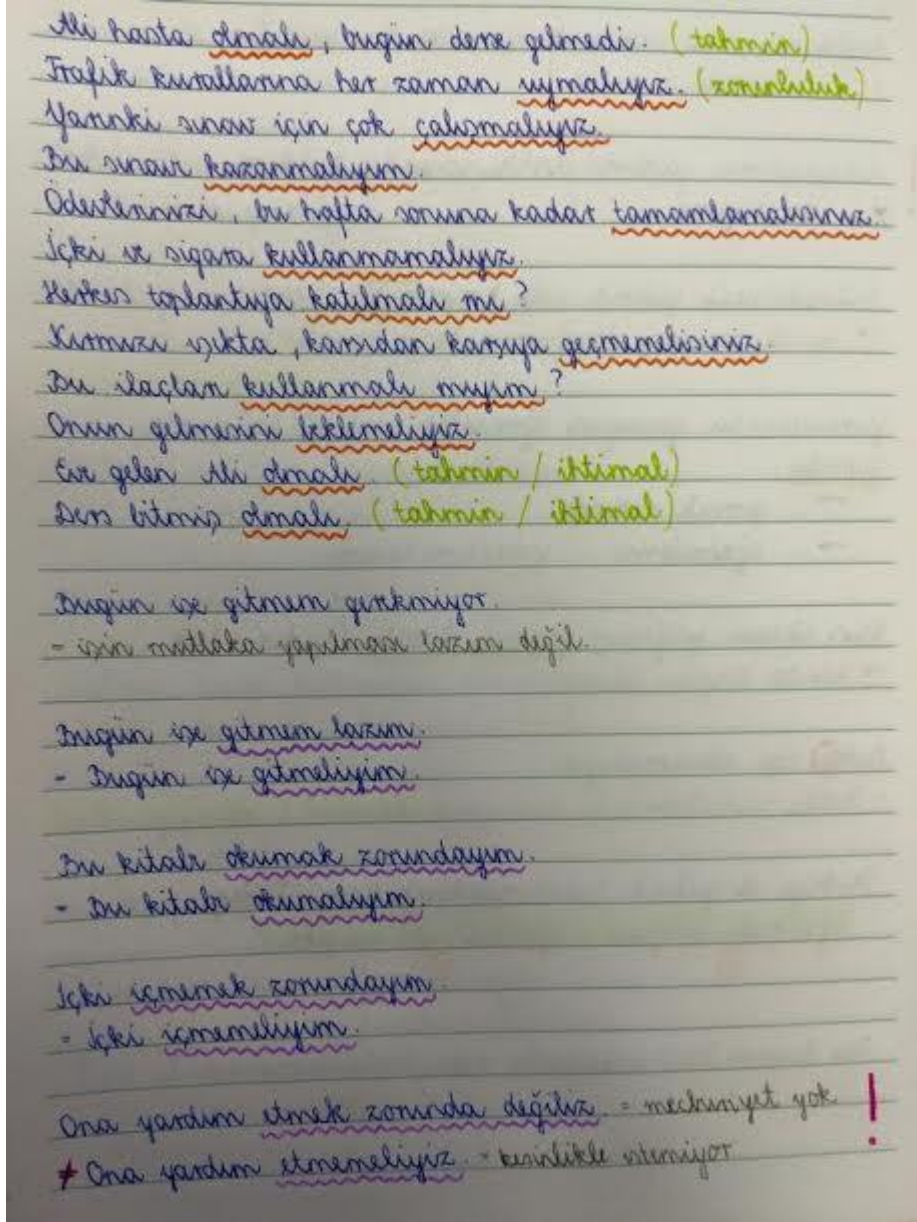 Ali hasta olmalı, bugün derse gelmedi. (tahmin)
Trafik kurallarına her zaman uymalıyız. (zorunluluk)
Yarınki sınav için çok çalışmalıyız.
Bu sınavı kazanmalıyım.
Ödevlerinizi, bu hafta sonuna kadar tamamlamalısınız.
İçki ve sigara kullanmamalıyız.
Herkes toplantıya katılmalı mı?
Kırmızı ışıkta, karşıdan karşıya geçmemelisiniz.
Bu ilaçları kullanmalı mıyım?
Onun gelmesini beklemeliyiz.
Eve gelen Ali olmalı. (tahmin / ihtimal)
Ders bitmiş olmalı. (tahmin / ihtimal)
Bugün işe gitmem gerekmiyor.
- işin mutlaka yapılması lazım değil.
Bugün işe gitmem lazım.
- Bugün işe gitmeliyim.
Bu kitabı okumak zorundayım.
- Bu kitabı okumalıyım.
İçki içmemek zorundayım.
- İçki içmemeliyim.
Ona yardım etmek zorunda değiliz. = mecburiyet yok !
≠ Ona yardım etmemeliyiz. = kesinlikle istemiyor